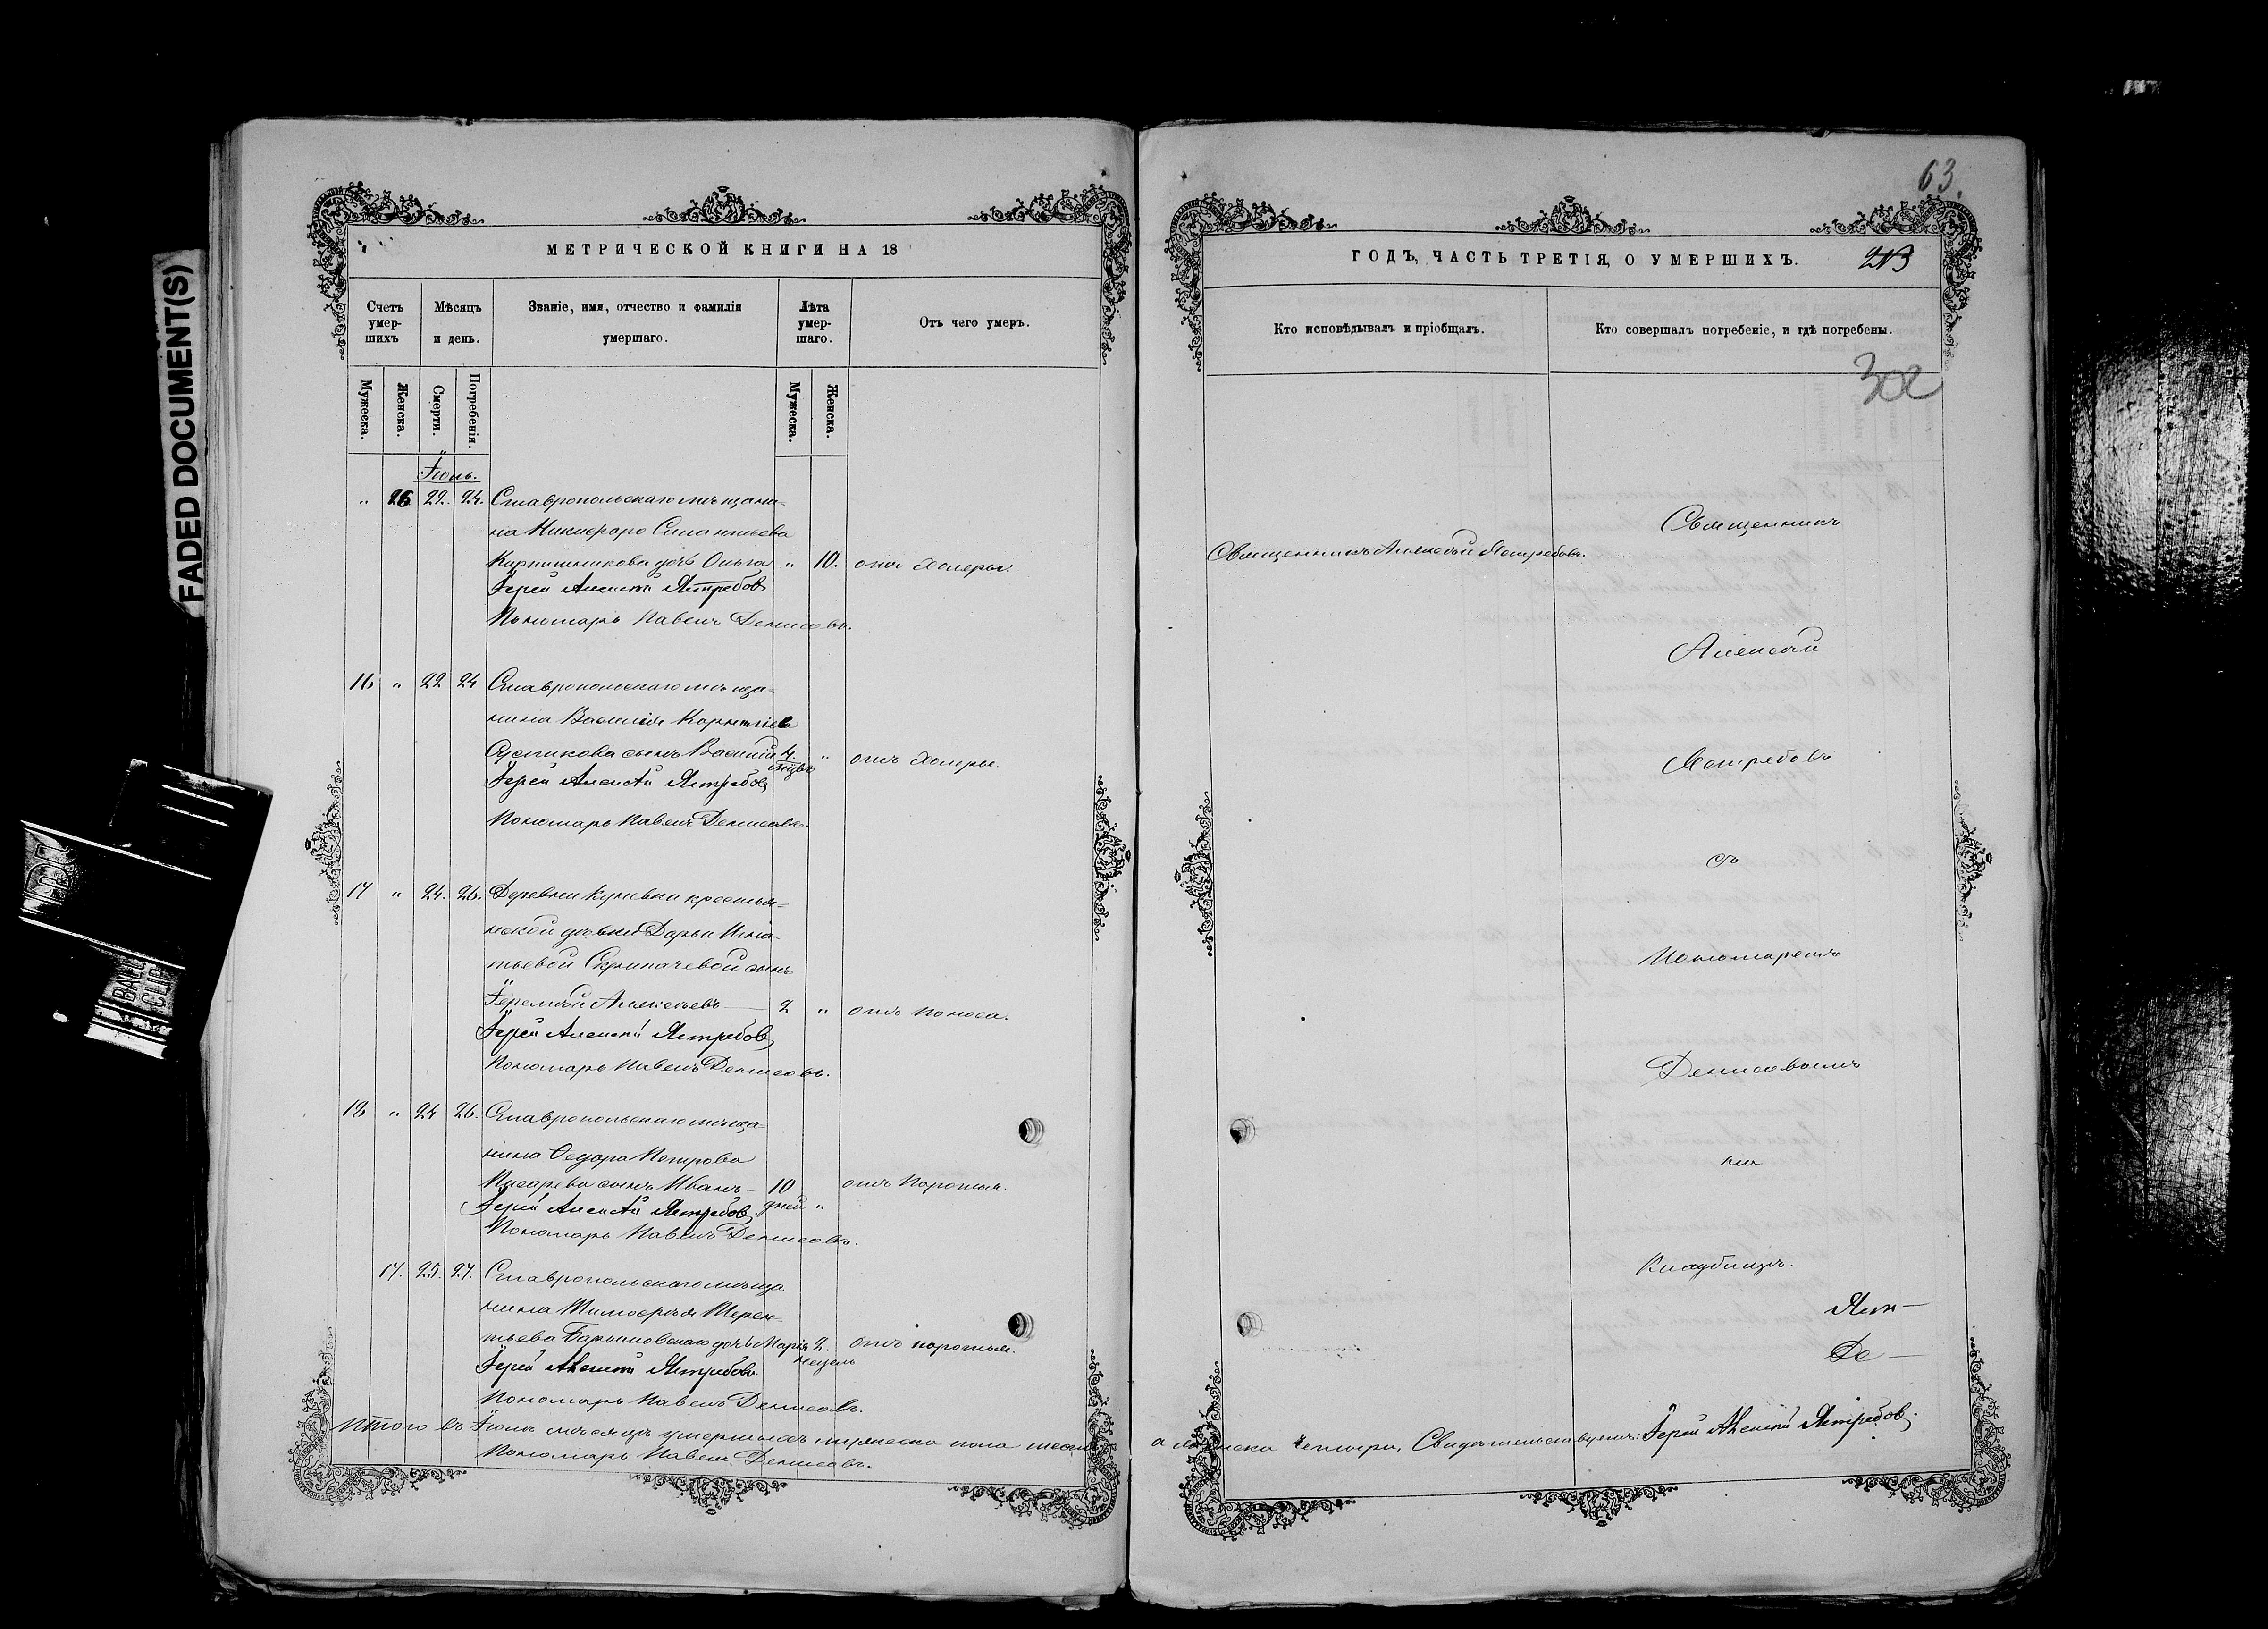 63.
FADED DOCUMENT(S)
МЕТРИЧЕСКОЙ КНИГИ НА 18
Счетъ умер-шихъ
Мѣсяцъ и день.
Званіе, имя, отчество и фамилія умершаго.
Лѣта умер-шаго.
Отъ чего умеръ.
Мужеска.
Женска.
Смерти.
Погребенія.
Мужеска.
Женска.
Іюль.
" 26 22. 24. Ставропольскаго мѣщани-
на Никифора Силантьева
Кирпишникова дочь Ольга " 10. отъ холеры.
Іерей Алексѣй Ястребовъ
Пономарь Павелъ Денисовъ.
16 " 22 24 Ставропольскаго мѣща-
нина Василія
сынъ Василій 4. мѣсяц. " отъ холеры.
Іерей Алексѣй Ястребовъ
Пономарь Павелъ Денисовъ.
17 " 24. 26. Деревни Куневки крестьян-
ской дѣвки Дарьи Игна-
тьевой Скрипачевой сынъ
Іеремѣй Алексѣевъ — 2 " отъ поноса.
Іерей Алексѣй Ястребовъ
Пономарь Павелъ Денисовъ.
18 " 24 26. Ставропольскаго мѣща-
нина Ѳедора Петрова
Писарева сынъ Иванъ — 10 дней " отъ Горячки.
Іерей Алексѣй Ястребовъ
Пономарь Павелъ Денисовъ.
17. 25. 27. Ставропольскаго мѣща
нина Тимоѳея Терен-
тьева дочь Марія 2. недѣль отъ
Іерей Алексѣй Ястребовъ
Пономарь Павелъ Денисовъ.
Итого въ мѣсяцѣ умершихъ мужеска пола
Пономарь Павелъ Денисовъ.
ГОДЪ, ЧАСТЬ ТРЕТІЯ, О УМЕРШИХЪ.
213
Кто исповѣдывалъ и пріобщалъ.
Кто совершалъ погребеніе, и гдѣ погребены.
302
Священникъ Алексѣй Ястребовъ.
Священникъ
Алексѣй
Ястребовъ
съ
Пономаремъ
Денисовымъ
на
Кладбищѣ.
Яст—
Де—
а женска четыре, Свидѣтельствуемъ: Іерей Алексѣй Ястребовъ.
BALL CLIP